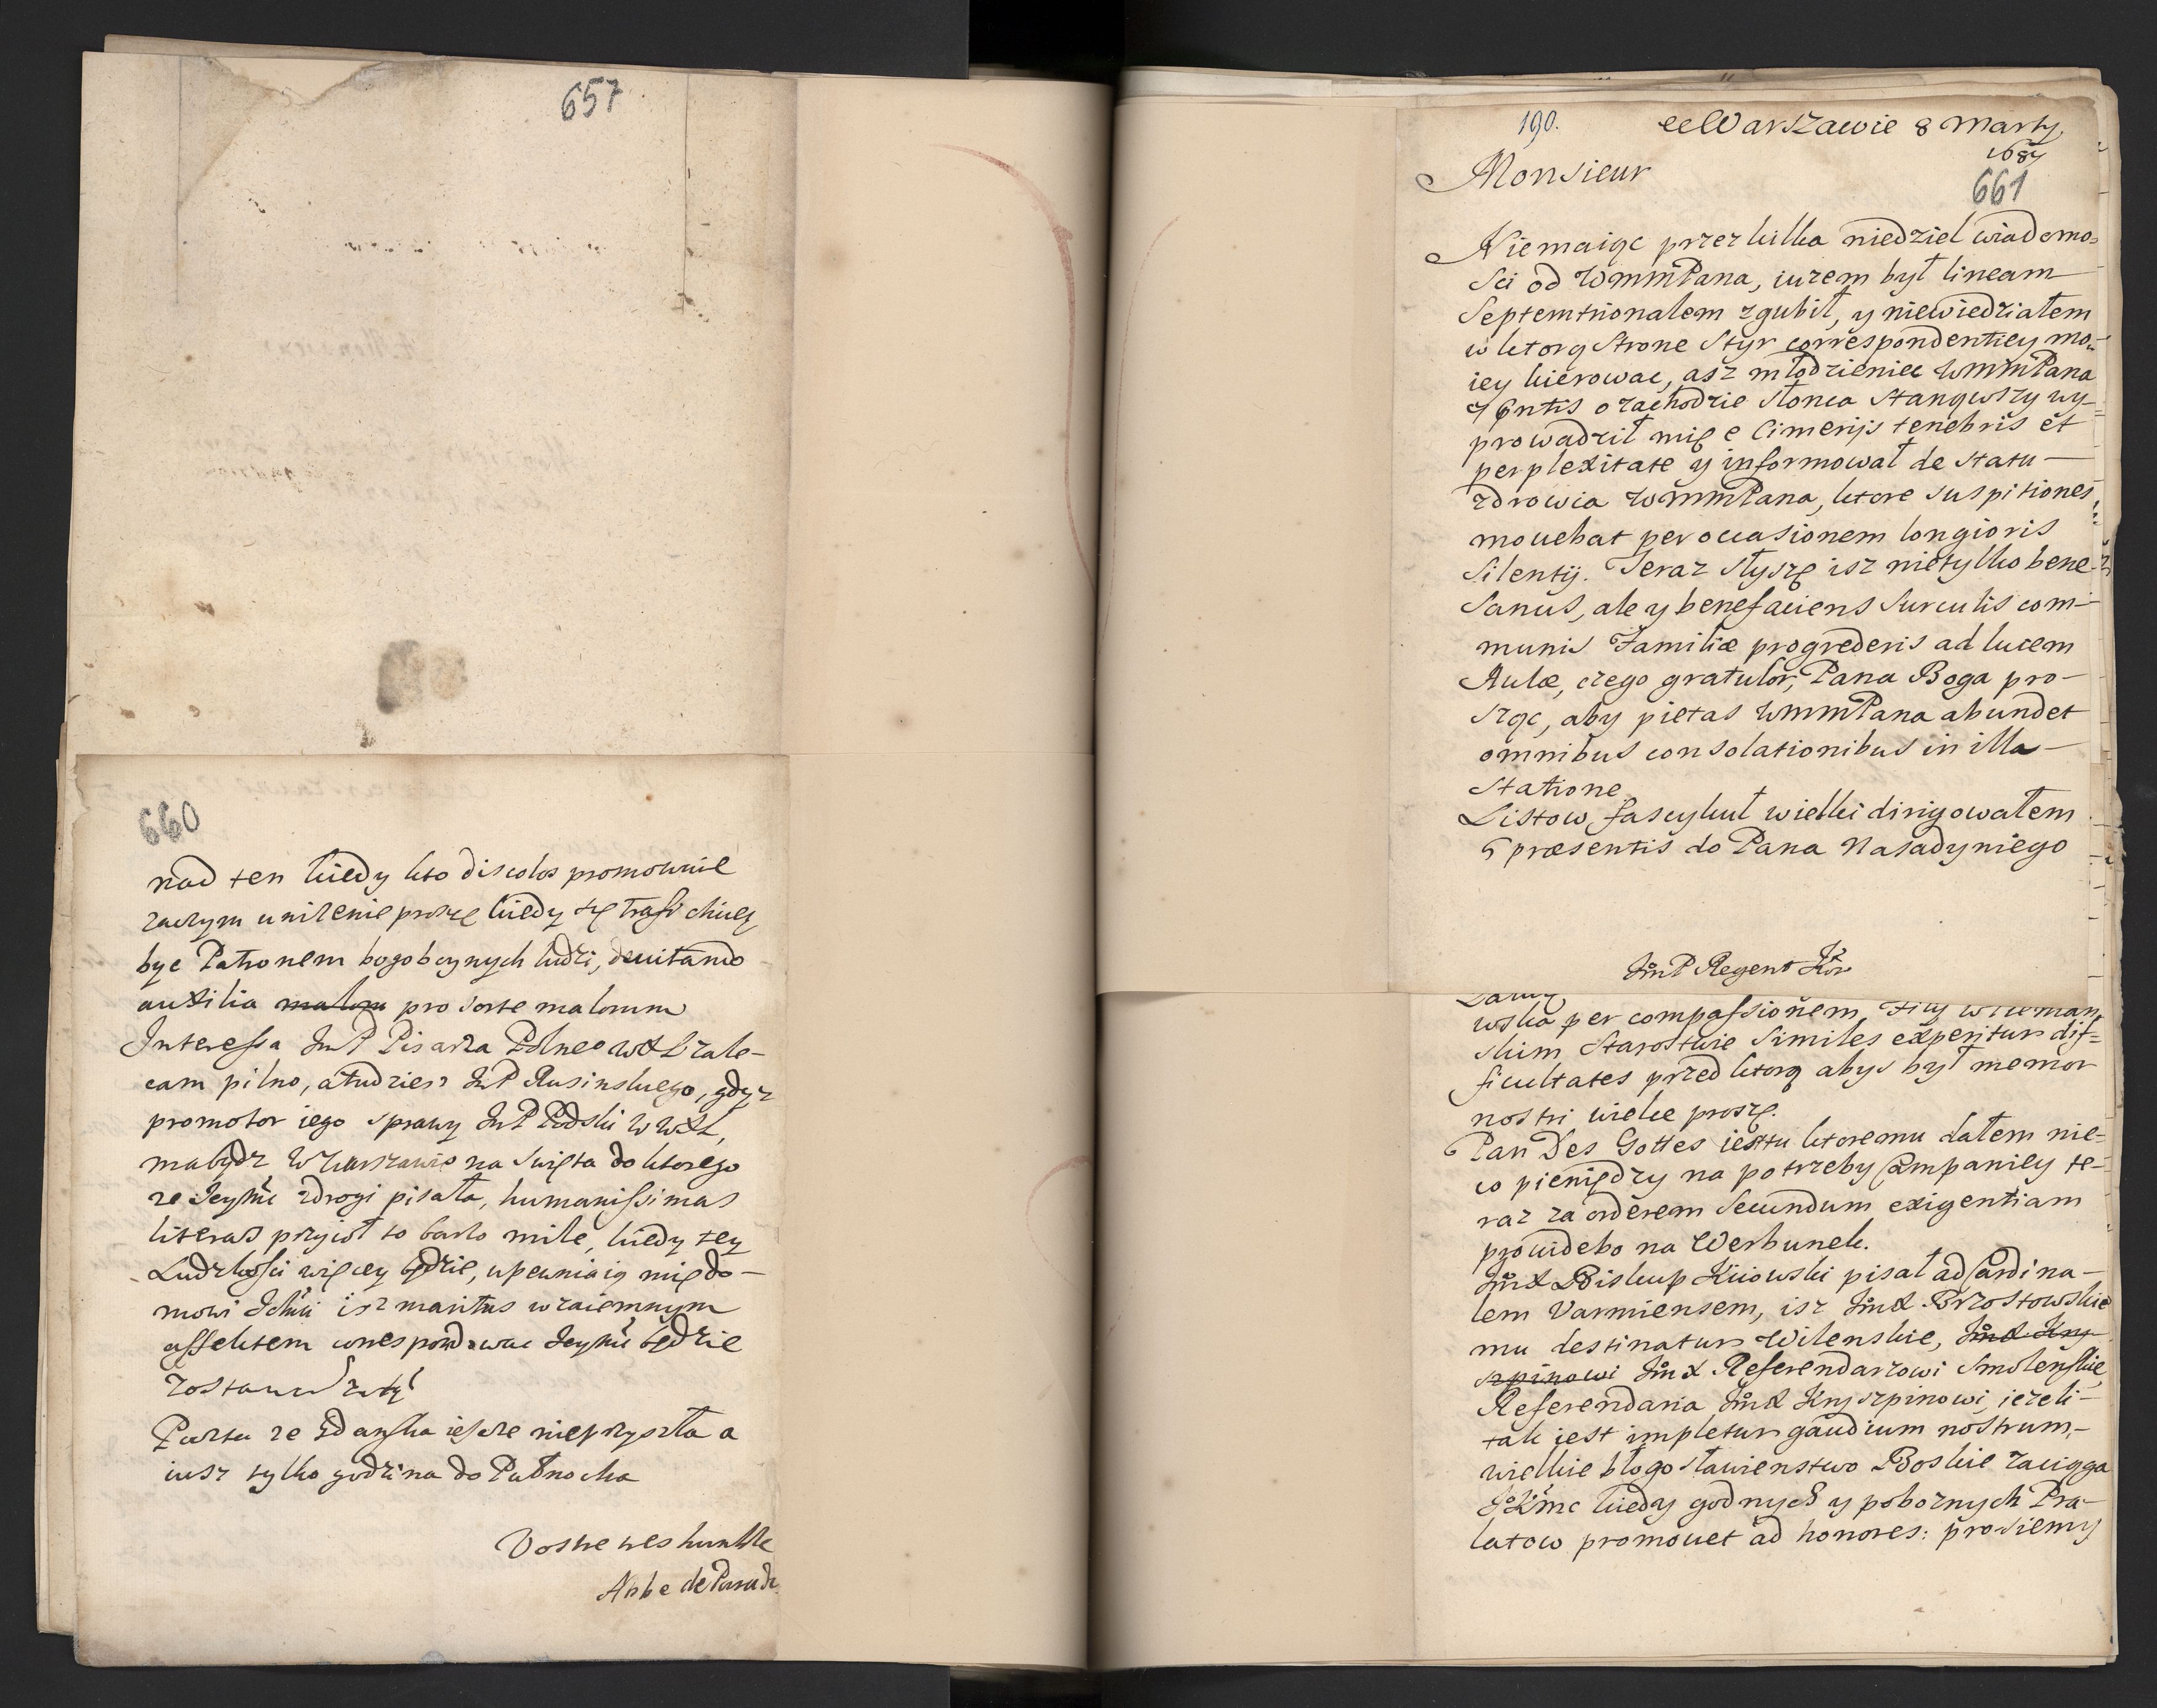 657
660
nad ten kiedy kto discolos promowuie
zaczym unizenie prosze kiedy sę trafi chciey
byc Patronem bogoboynych ludzi, devitando
auxilia malom pro sorte malorum
Interessa JmP Pisarza Polneo WXL zale-
cam pilno, a tudziesz JmP Rusinskiego, gdyz
promotor iego sprawy JmP Podski W WXL,
ma bydz w Warszawie na swięta do ktorego
ze Jeymc z drogi pisała, humanissimas
literas przyiął to barzo mile, kiedy tey
Ludzkości więcey będzie, upewniaią mię do-
mowi Ichmci isz maritus wzaiemnym
affektem correspondowac Jeymc będzie
Poczta ze Gdanska iescze nieprzyszła a
iusz tylko godzina do Pułnocka
Vostre tres humble
Abbe de Parad
190. w Warszawie 8 Marty
1687
661
Monsieur
Niemaiąc przez kilka niedziel wiadomo-
sci od WmmPana, iuzem był lineam
Septemtrionalem zgubił, y niewiedziałem
w ktorą strone styr correspondentiey mo-
iey kierowac, asz młodzieniec WmmPana
7 pntis o zachodzie słonca stanąwszy wy-
prowadził mię e Cimerijs tenebris et
perplexitate y informował de statu
zdrowia WmmPana, ktore suspitiones
mouebat per occasionem longioris
Silentij. Teraz słyszę isz nietylko bene
Sanus, ale y benefaciens surculis com-
munis Familiæ progrederis ad lucem
Aulæ, czego gratulor, Pana Boga pro-
sząc, aby pietas WmmPana abundet
omnibus consolationibus in illa
Statione
Listow fascykuł wielki dirigowałem
5 præsentis do Pana Nasadyniego
JmP Regent Kor
wska per compassionem
skim Starostwie similes experitur dif-
ficultates przed ktorą abys był memor
nostri wielce proszę.
Pan Des Gottes iest tu ktoremu dałem nie-
co pieniędzy na potrzeby Campaniey te-
raz za orderem secundum exigentiam
prouidebo na Werbunek.
JmX Biskup Kiiowski pisał ad Cardina-
lem Varmiensem, isz JmX Brzostowskie
mu destinatur Wilenskie, JmX Kry
szpinowi JmX Referendarzowi Smolenskie,
Referendaria JmX Kryszpinowi, iezeli
tak iest impletur gaudium nostrum,
wielkie błogosławienstwo Boskie zaciąga
JKmc kiedy godnych y poboznych Pra-
łatow promouet ad honores: prosiemy